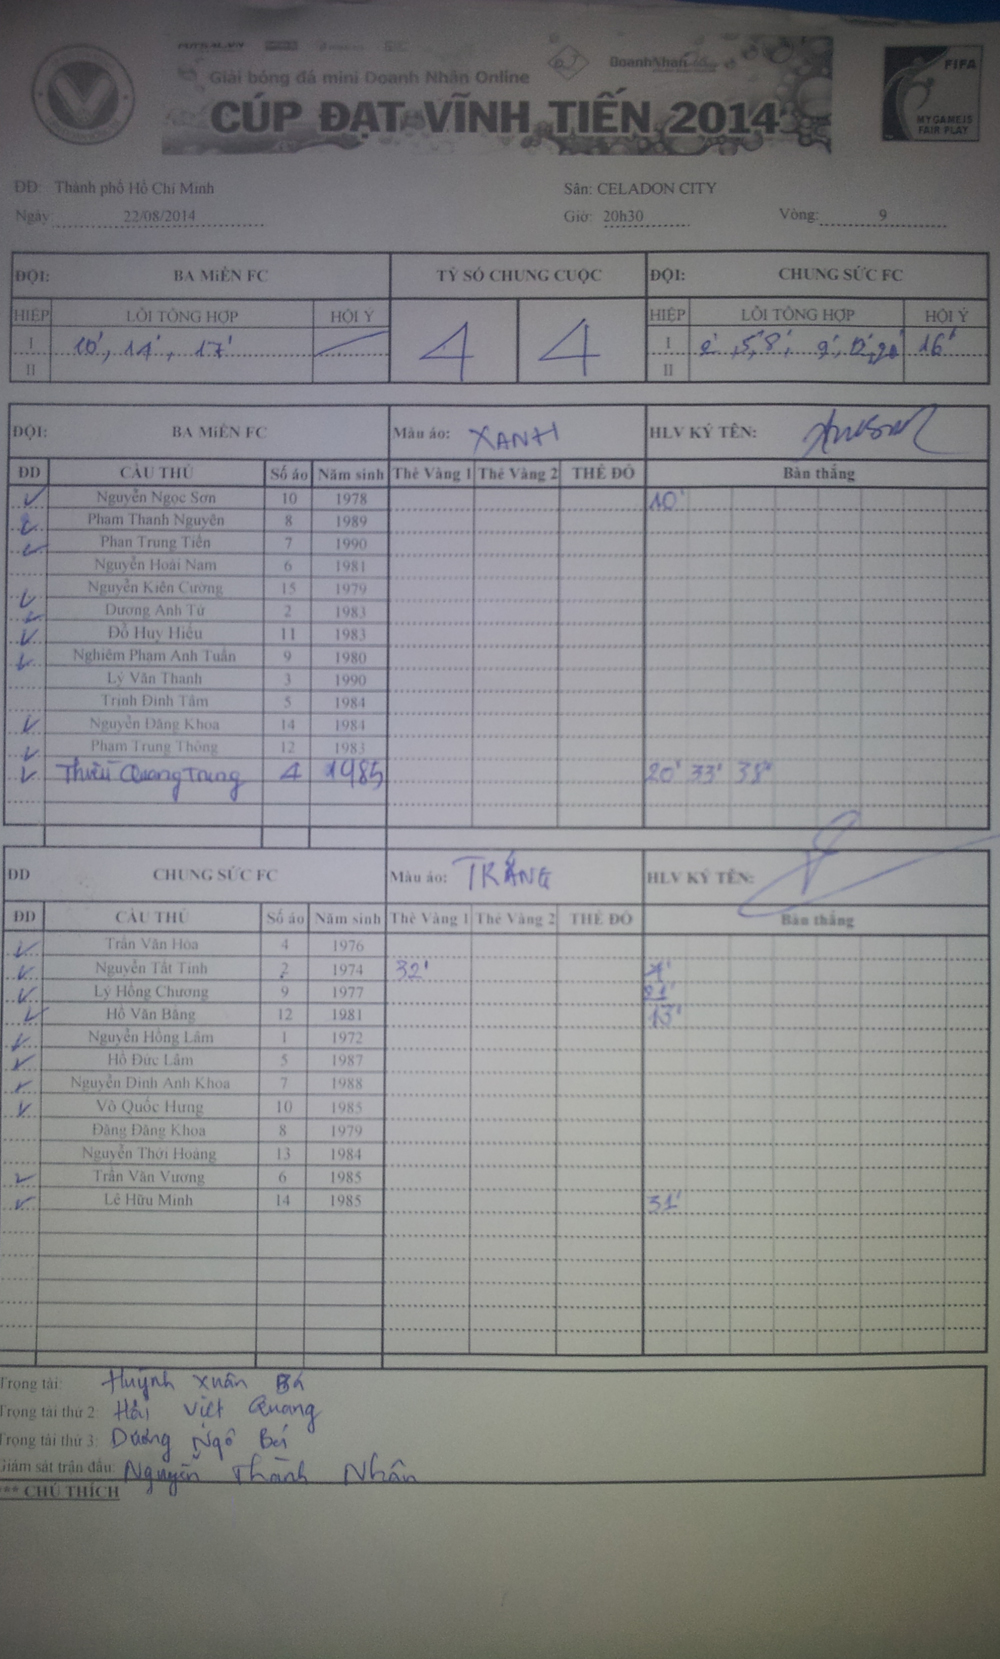 Giải bóng đá mini Doanh Nhân Online
DoanhNhân
CÚP ĐẠT VĨNH TIẾN 2014
FIFA
MY GAME IS
FAIR PLAY
ĐĐ: Thành phố Hồ Chí Minh Sân: CELADON CITY
Ngày: 22/08/2014 Giờ: 20h30 Vòng: 9
ĐỘI: BA MIỀN FC TỶ SỐ CHUNG CUỘC ĐỘI: CHUNG SỨC FC
HIỆP LỖI TỔNG HỢP HỘI Ý 4 4 HIỆP LỖI TỔNG HỢP HỘI Ý
I 10', 14', 17' I 2', 5', 8', 9', 16'
II II
ĐỘI: BA MIỀN FC Màu áo: XANH HLV KÝ TÊN:
ĐD CẦU THỦ Số áo Năm sinh Thẻ Vàng 1 Thẻ Vàng 2 THẺ ĐỎ Bàn thắng
Nguyễn Ngọc Sơn 10 1978 10'
Phạm Thanh Nguyên 8 1989
Phan Trung Tiên 7 1990
Nguyễn Hoài Nam 6 1981
Nguyễn Kiên Cường 15 1979
Dương Anh Tú 2 1983
Đỗ Huy Hiếu 11 1983
Nghiêm Phạm Anh Tuấn 9 1980
Lý Văn Thanh 3 1990
Trịnh Đình Tâm 5 1984
Nguyễn Đăng Khoa 14 1984
Phạm Trung Thông 12 1983
Thiều Quang Trung 4 1985 20' 33' 38'
ĐD CHUNG SỨC FC Màu áo: TRẮNG HLV KÝ TÊN:
ĐD CẦU THỦ Số áo Năm sinh Thẻ Vàng 1 Thẻ Vàng 2 THẺ ĐỎ Bàn thắng
Trần Văn Hòa 4 1976
Nguyễn Tất Tình 2 1974 32'
Lý Hồng Chương 9 1977 21'
Hồ Văn Bằng 12 1981 13'
Nguyễn Hồng Lâm 1 1972
Hồ Đức Lâm 5 1987
Nguyễn Đình Anh Khoa 7 1988
Võ Quốc Hưng 10 1985
Đặng Đăng Khoa 8 1979
Nguyễn Thới Hoàng 13 1984
Trần Văn Vương 6 1985
Lê Hữu Minh 14 1985 31'
Trọng tài: Huỳnh Xuân Bá
Trọng tài thứ 2: Hải Việt Quang
Trọng tài thứ 3: Dương Ngô Bá
Giám sát trận đấu: Nguyễn Thành Nhân
*** CHÚ THÍCH